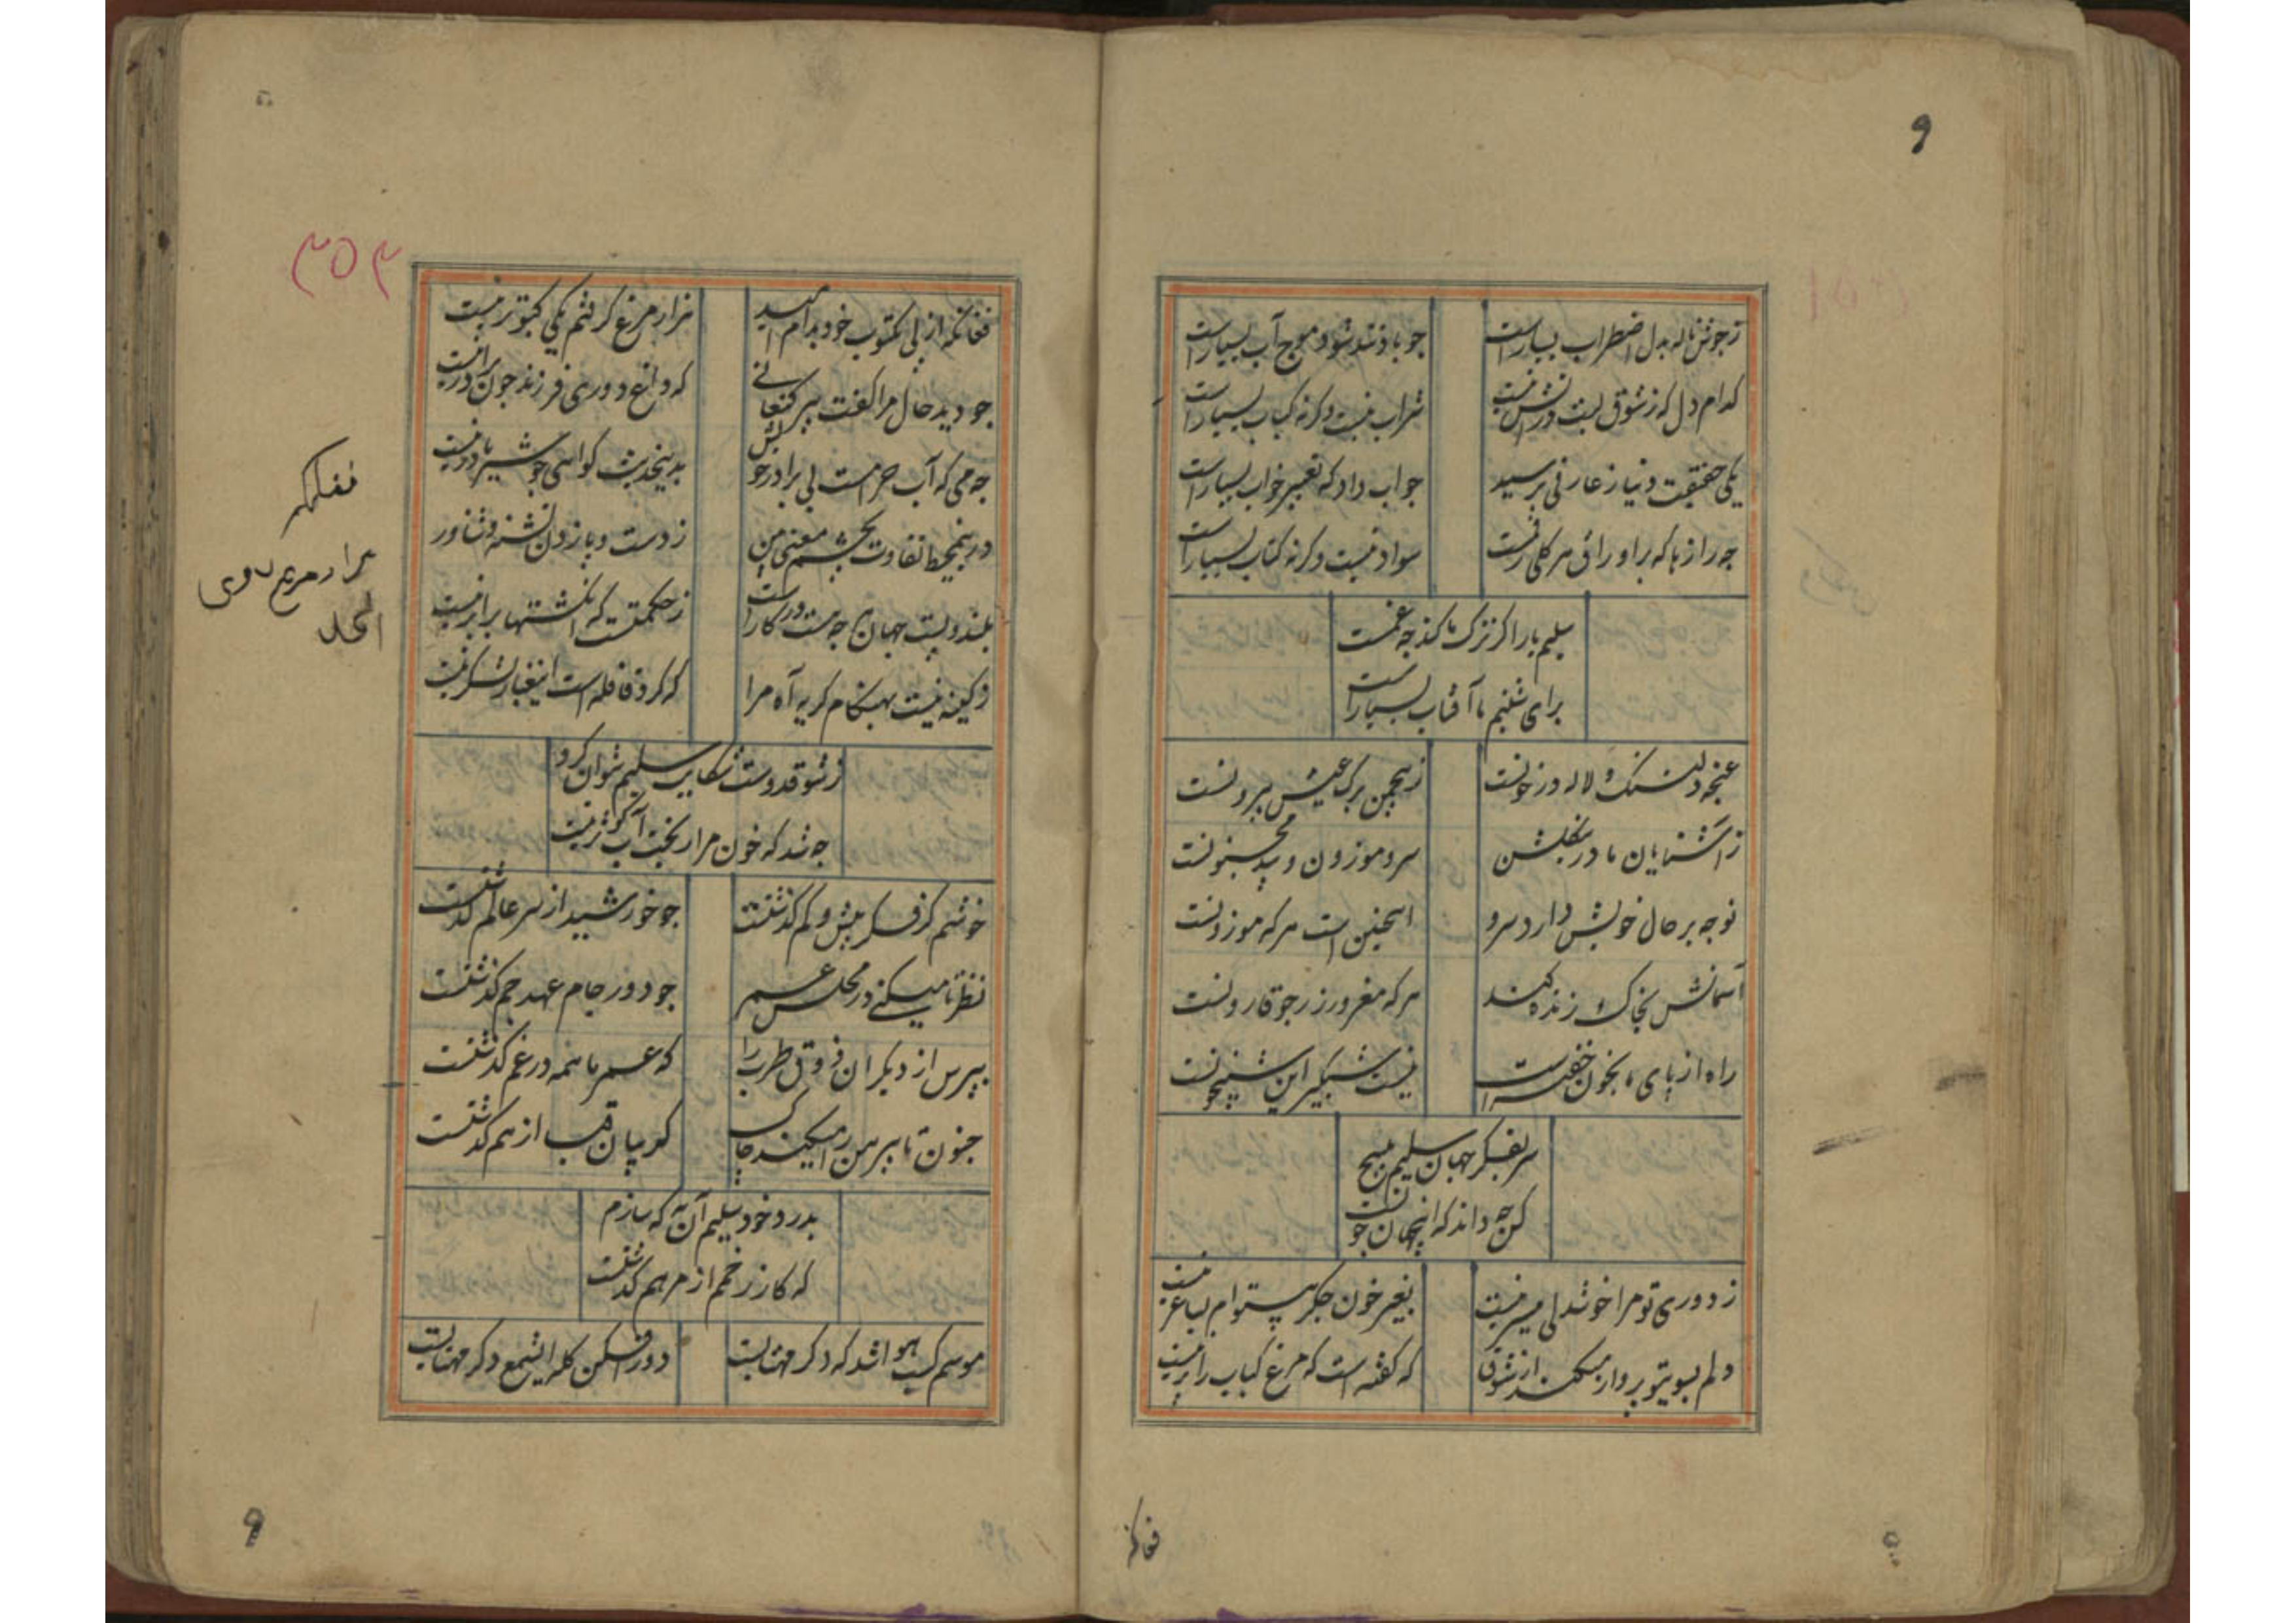 ز جوش ناله بدل اضطراب بسیار است
چو باد تند شود موج آب بسیار است
کدام دل که ز شوق لبش در آتش نیست
شراب نیست وگرنه کباب بسیار است
یکی حقیقت دنیا ز عارفی پرسید
جواب داد که تعبیر خواب بسیار است
چه رازها که بر اوراق هر گلی رقمست
سواد نیست وگرنه کتاب بسیار است
سلیم یار اگر ترک ما کند چه غمست
برای شبنم ما آفتاب بسیار است
غنچه دلتنگ و لاله در خونست
زین چمن برگ عیش بیرونست
ز آشنایان ما درین گلشن
سرو موزون و بید مجنونست
نوحه بر حال خویش دارد سرو
اینچنین است هر که موزونست
آسمانش بخاک زنده کند
هر که مغرور زر چو قارونست
راه از پای ما بخون خفته است
نیست شبگیر این شبیخونست
سر بفکر جهان سلیم مپیچ
کس چه داند که اینجهان چونست
ز دوری تو مرا خوشدلی میسر نیست
بغیر خون جگر بیتوام بساغر نیست
دلم بسوی تو پرواز میکند از شوق
که گفته است که مرغ کباب را پر نیست
فغانکه
۳۵۳
فغانکه از پی مکتوب خود بدام امید
هزار مرغ گرفتم یکی کبوتر نیست
چو دید حال مرا گفت پیر کنعانی
که داغ دوری فرزند چون برادر نیست
چه می که آب حرامست بی برادر خویش
بدین حدیث گواهی چو شیر مادر نیست
درین محیط تفاوت بچشم معنی بین
ز دست و پا زدن تشنه و شناور
بلند و پست جهان هر چه هست در کار است
ز حکمتست که انگشتها برابر نیست
وکینه نیست بهنگام گریه آه مرا
که گرد قافله است این غبار لشکر نیست
ز شوق دوست شکایت سلیم نتوان کرد
چه شد که خون مرا ریخت آب کوثر نیست
خوشم کز فکر بیش و کم گذشتست
چو خورشید از سر عالم گذشتست
نظر تا میکنی در محفل غم
چو دور جام عهد جم گذشتست
بپرس از دیگران ذوق طرب را
که عمر ما همه در غم گذشتست
جنون تا پیرهن را میکند چاک
گریبان قبا از هم گذشتست
بدرد خود سلیم آن به که سازم
که کار زخم از مرهم گذشتست
موسم کسب هوا شد که دگر مهتابست
دور افکن گله ای شمع دگر مهتابست